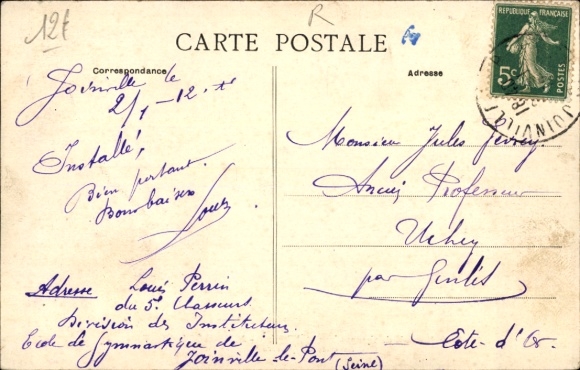 12t
R
CARTE POSTALE
Correspondance
Adresse
RÉPUBLIQUE FRANÇAISE
5c
POSTES
JOINVILLE
Joinville le
2/1-12.
Installé,
Bien portant.
Bons baisers
Louis
Adresse Louis Perrin
du 5e Chasseurs
Division des Instituteurs
Ecole de Gymnastique de
Joinville-le-Pont
(Seine)
Monsieur Jules
Ancien Professeur
Uchey
par Genlis
Côte-d'Or.